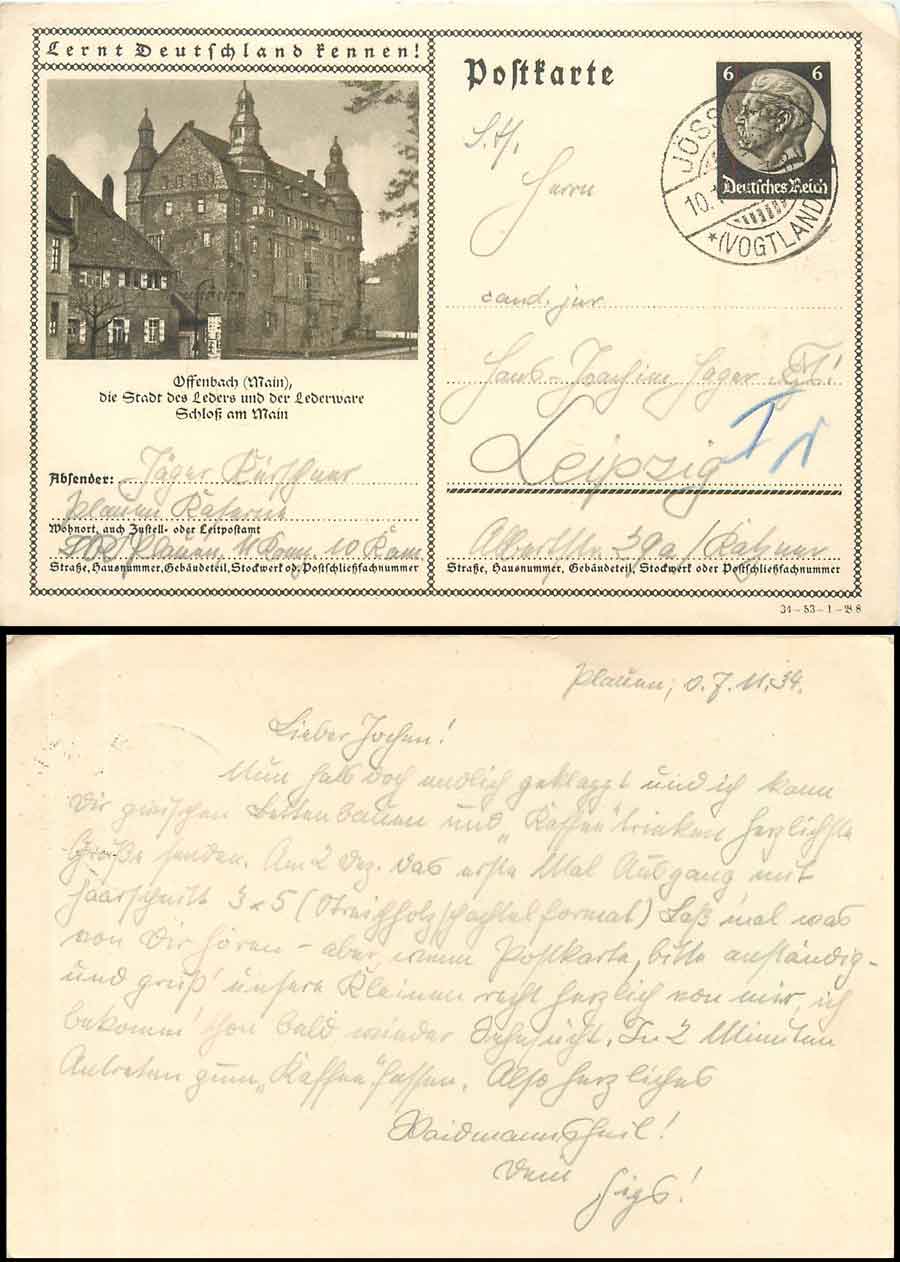 Lernt Deutschland kennen!
Offenbach (Main),
die Stadt des Leders und der Lederware
Schloß am Main
Absender: Jäger Kürschner
Plauen Kaserne
Wohnort, auch Zustell- oder Leitpostamt
Plauen, 11 Komp. 10
Straße, Hausnummer, Gebäudeteil, Stockwerk od. Postschließfachnummer
Postkarte
6 6
Deutsches Reich
JÖSS
10.
*(VOGTLAND)
Herrn
cand. jur.
Hans-Joachim Jäger
Leipzig
39a /
Straße, Hausnummer, Gebäudeteil, Stockwerk oder Postschließfachnummer
34-83-1-B8
Plauen, d. 7. 11. 34.
Lieber Jochen!
Nun hats doch endlich geklappt und ich kann
Dir zwischen Bettenbauen und „Kaffee" trinken herzlichste
Grüße senden. Am 2 Dez. das erste Mal Ausgang mit
Haarschnitt 3x5 (Streichholzschachtelformat) Laß mal was
von Dir hören - aber, wenn Postkarte, bitte anständig-
und grüß' unsere Kleinen recht herzlich von mir, ich
bekomm' schon bald wieder Sehnsucht. In 2 Minuten
Antreten zum „Kaffee" fassen. Also herzliches
Waidmannsheil!
Dein